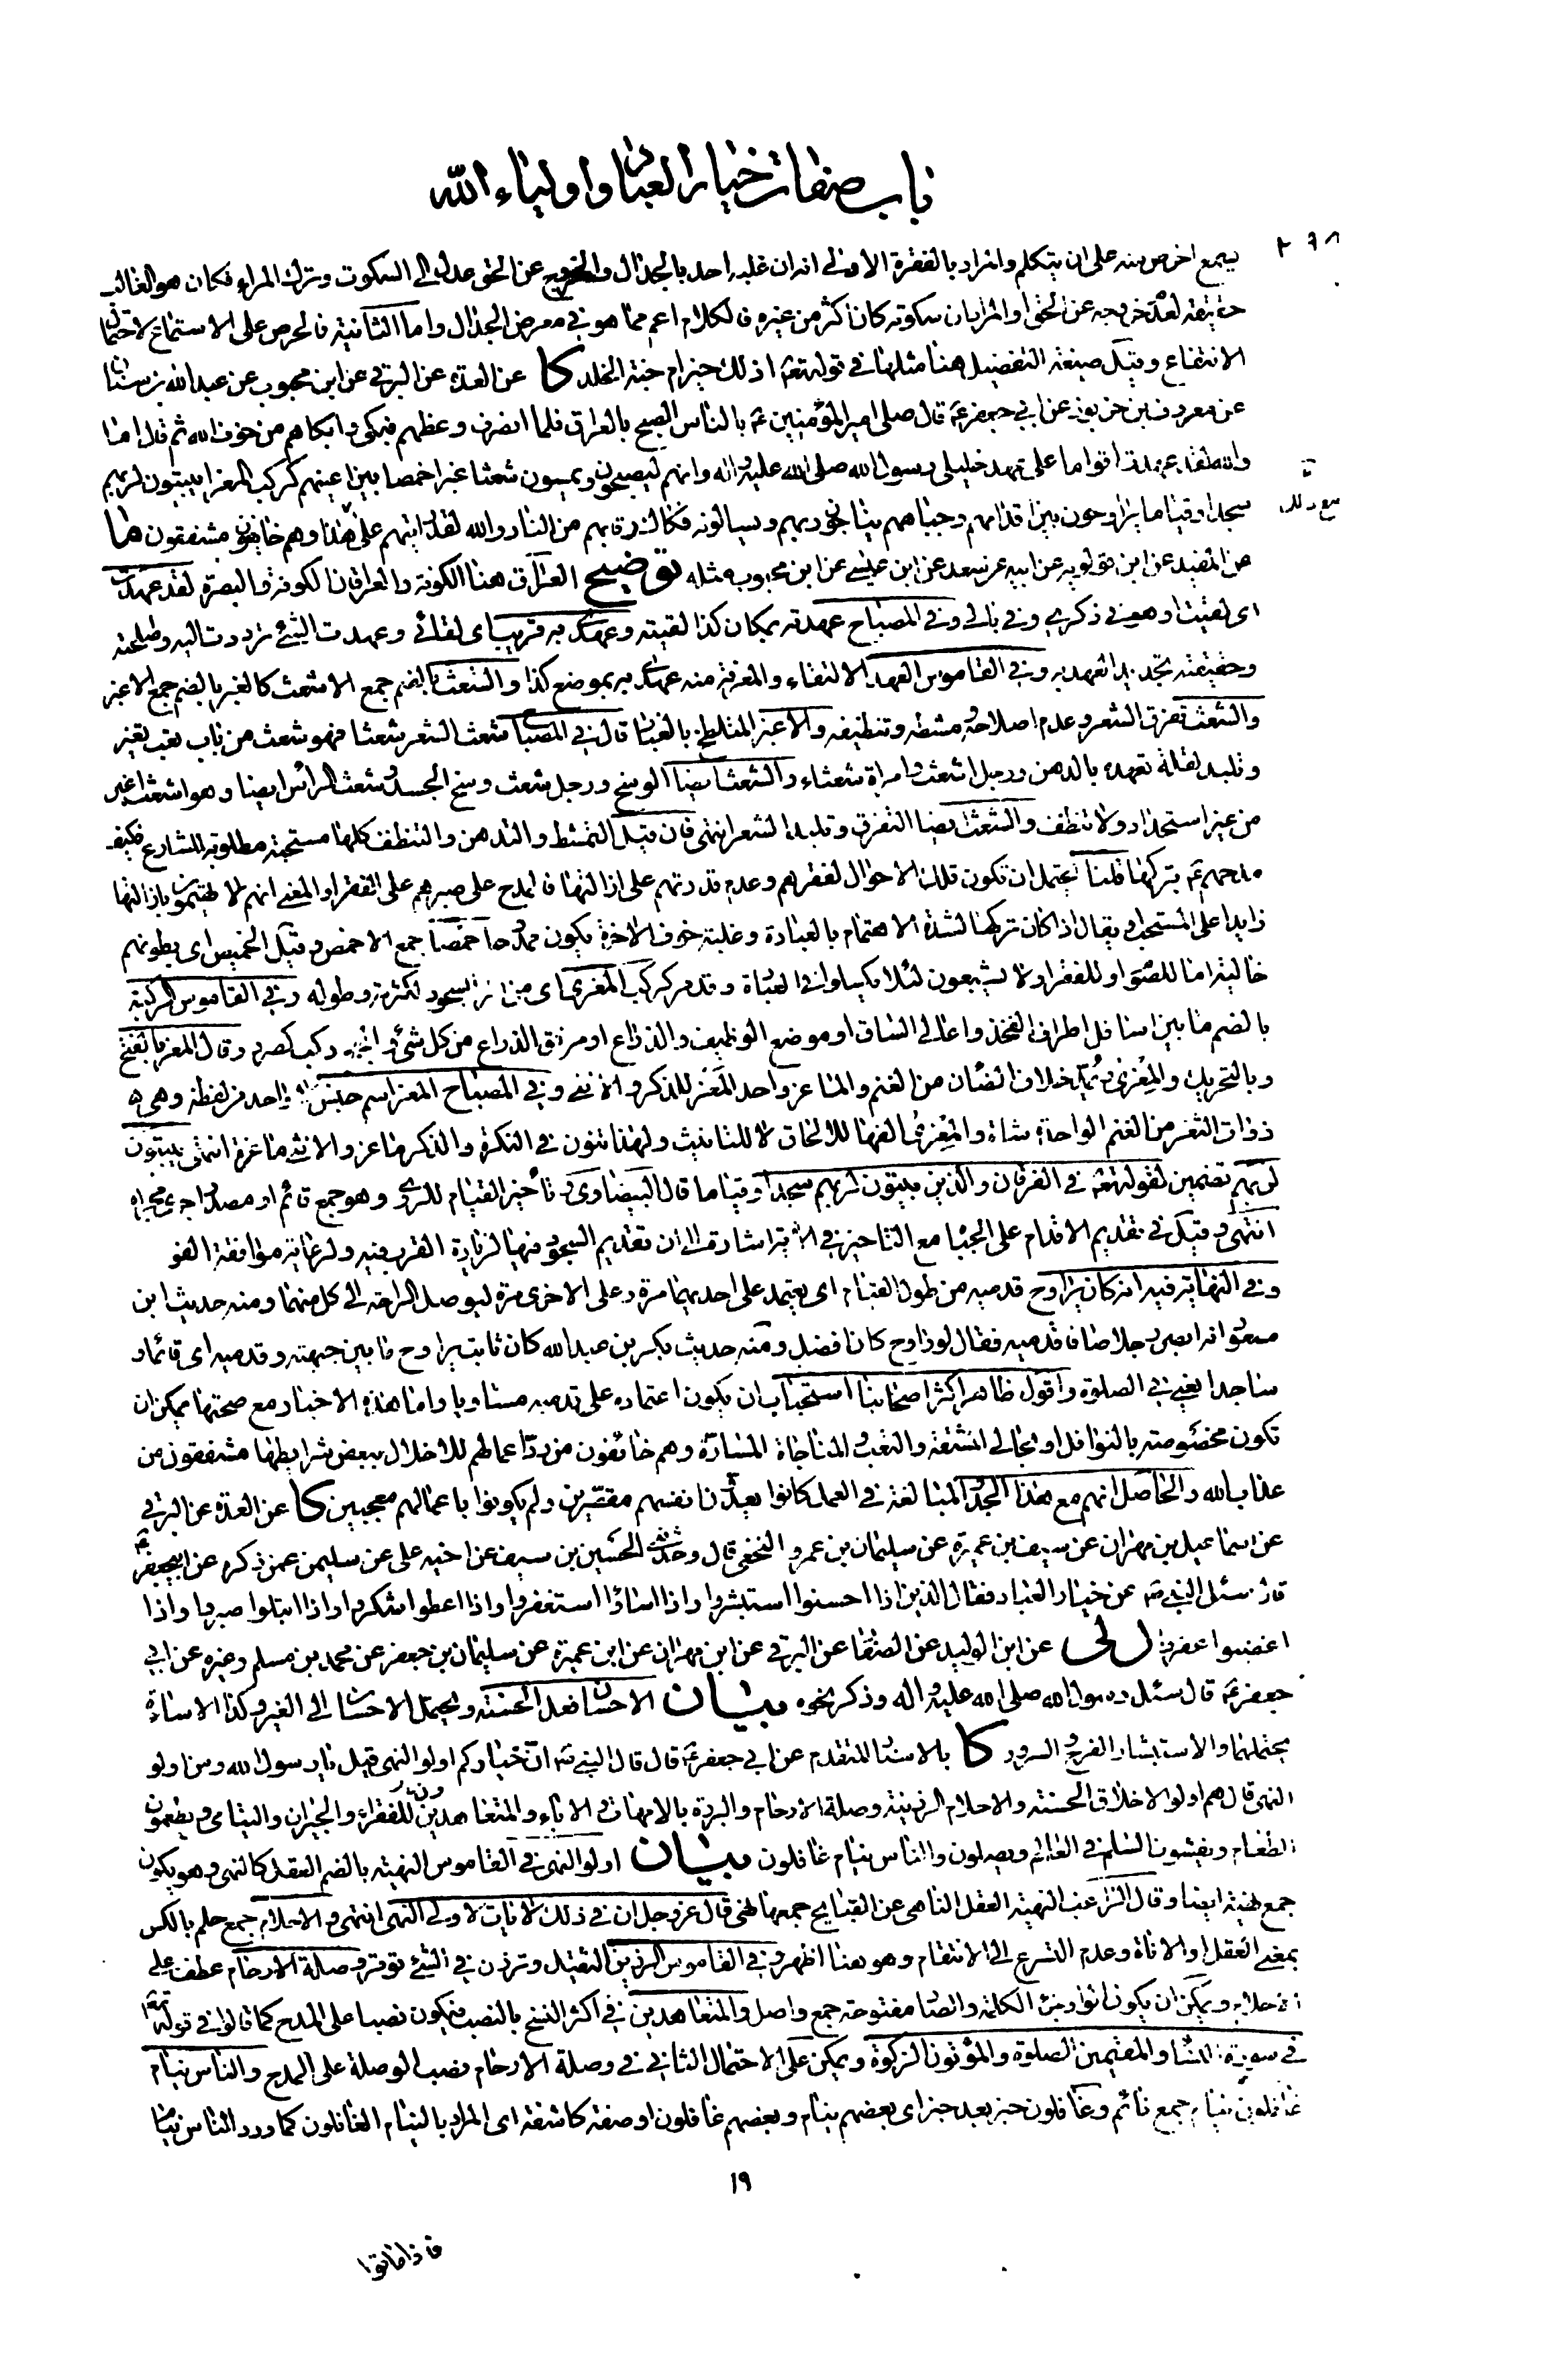 باب صفات خيار العباد و اولياء الله
٢٩٨
يسمع احرص منه على ان يتكلم والمراد بالفقرة الاولى انه ان غلبه احد بالجدال والخروج عن الحق عدل الى السكوت وترك المراء فكان هو الغالب
حقيقة لعدم خروجه عن الحق او المراد ان سكوته كان اكثر من غيره فالكلام اعم مما هو في معرض الجدال واما الثانية فالحرص على الاستماع لاحتمال
الانتفاع وقيل صيغة التفضيل هنا مثلها في قوله تعالى اذلك خير ام جنة الخلد كا عن العدة عن البرقي عن ابن محبوب عن عبد الله بن سنان
عن معروف بن خربوذ عن ابي جعفر ع قال صلى امير المؤمنين ع بالناس الصبح بالعراق فلما انصرف وعظهم فبكى وابكاهم من خوف الله ثم قال اما
والله لقد عهدت اقواما على عهد خليلي رسول الله صلى الله عليه واله وانهم ليصبحون ويمسون شعثا غبرا خمصا بين اعينهم كركب المعزا يبيتون لربهم
سجدا وقياما يراوحون بين اقدامهم وجباههم يناجون ربهم ويسالونه فكاك رقابهم من النار والله لقد رايتهم على هذا وهم خائفون مشفقون ما
عن المفيد عن ابن قولويه عن ابيه عن سعد عن ابن عيسى عن ابن محبوب مثله توضيح العراق هنا الكوفة والعراقان الكوفة والبصرة لقد عهدت
اى لقيت او هو في ذكري وفي بالي وفي المصباح عهدته بمكان كذا لقيته وعهدي به قريب اى لقائي وعهدت الشئ ترددت اليه واصلحته
وحقيقته تجديد العهد به وفي القاموس العهد الالتقاء والمعرفة منه عهدي به بموضع كذا والشعث بالضم جمع الاشعث كالغبر بالضم جمع الاغبر
والشعث تفرق الشعر وعدم اصلاحه ومشطه وتنظيفه والاغبر المتلطخ بالغبار قال في المصباح شعث الشعر شعثا فهو شعث من باب تعب تغير
وتلبد لقلة تعهده بالدهن ورجل اشعث وامراة شعثاء والشعث ايضا الوسخ ورجل شعث وسخ الجسد وشعث الراس ايضا وهو اشعث اغبر
من غير استحداد ولا تنظف والشعث ايضا التفرق وتلبد الشعر انتهى فان قيل التمشط والتدهن والتنظف كلها مستحبة مطلوبة للشارع فكيف
مدحهم ع بتركها قلنا يحتمل ان تكون تلك الاحوال لفقرهم وعدم قدرتهم على ازالتها فالمدح على صبرهم على الفقر او المعنى انهم لا يهتمون بازالتها
زايدا على المستحب ويقال اذا كان تركها لشدة الاهتمام بالعبادة وغلبة خوف الاخرة يكون ممدوحا خمصا جمع الاخمص وقيل الخميس اى بطونهم
خالية اما للصوم او للفقر او لا يشبعون لئلا يكسلوا في العبادة وقد مر كركب المعزى اى من اثر السجود لكثرته وطوله وفي القاموس الركبة
بالضم ما بين اسافل اطراف الفخذ واعالي الساق او موضع الوظيف والذراع او مرفق الذراع من كل شئ ركب كصرد وقال المعز بالفتح
وبالتحريك والمعزى ويمد خلاف الضان من الغنم والماعز واحد المعز للذكر والانثى وفي المصباح المعز اسم جنس لا واحد من لفظه وهي
ذوات الشعر من الغنم الواحدة شاة والمعزى الفها للالحاق لا للتانيث ولهذا تنون في النكرة والذكر ماعز والانثى ماعزة انتهى يبيتون
لربهم تضمين لقوله تعالى في الفرقان والذين يبيتون لربهم سجدا وقياما قال البيضاوي وتاخير القيام للروى وهو جمع قائم او مصدر اجري مجراه
انتهى وقيل في تقديم الاقدام على الجباه مع التاخير في الاية اشارة الى ان تقديم السجود فيها لزيادة القرب فيه ولرعاية موافقة الفو
وفي النهاية فيه انه كان يراوح قدميه من طول القيام اى يعتمد على احديهما مرة وعلى الاخرى مرة ليوصل الراحة الى كل منهما ومنه حديث ابن
مسعود انه ابصر رجلا صافا قدميه فقال لو راوح كان افضل ومنه حديث بكر بن عبد الله كان ثابت يراوح ما بين جبهته وقدميه اى قائما و
ساجدا يعني في الصلوة واقول ظاهر اكثر اصحابنا استحباب ان يكون اعتماده على قدميه مساويا واما هذه الاخبار مع صحتها يمكن ان
تكون مخصوصة بالنوافل او بحالي المشقة والتعب والمناجاة المسارة وهم خائفون من رد اعمالهم للاخلال ببعض شرايطها مشفقون من
عذاب الله والحاصل انهم مع هذا الجد والمبالغة في العمل كانوا يعدون انفسهم مقصرين ولم يكونوا باعمالهم معجبين كا عن العدة عن البرقي
عن اسماعيل بن مهران عن سيف بن عميرة عن سليمان بن عمرو النخعي قال وحدثني الحسين بن سيف عن اخيه على عن سليمن عمن ذكره عن ابي جعفر ع
قال سئل النبي ص عن خيار العباد فقال الذين اذا احسنوا استبشروا واذا اساؤا استغفروا واذا اعطوا شكروا واذا ابتلوا صبروا واذا
اغضبوا غفروا لى عن ابن الوليد عن الصفار عن البرقي عن ابن مهران عن ابن عميرة عن سليمان بن جعفر عن محمد بن مسلم وغيره عن ابي
جعفر ع قال سئل رسول الله صلى الله عليه واله وذكر نحوه بيان الاحسان فعل الحسنة ويحتمل الاحسان الى الغير وكذا الاساءة
يحتملهما والاستبشار الفرح والسرور كا بالاسناد المتقدم عن ابي جعفر ع قال قال النبي ص ان خياركم اولو النهى قيل يا رسول الله ومن اولو
النهى قال هم اولو الاخلاق الحسنة والاحلام الرزينة وصلة الارحام والبررة بالامهات والاباء والمتعاهدين للفقراء والجيران واليتامى ويطعمون
الطعام ويفشون السلام في العالم ويصلون والناس نيام غافلون بيان اولو النهى في القاموس النهية بالضم العقل كالنهى وهو يكون
جمع نهية ايضا وقال الراغب النهية العقل الناهي عن القبايح جمعها نهى قال عز وجل ان في ذلك لايات لاولي النهى انتهى والاحلام جمع حلم بالكسر
بمعنى العقل او الاناة وعدم التسرع الى الانتقام وهو هنا اظهر وفي القاموس الرزين الثقيل وترزن في الشئ توقر وصلة الارحام عطف على
الاحلام ويمكن ان يكون الواو جزء الكلمة والصاد مفتوحة جمع واصل والمتعاهدين في اكثر النسخ بالنصب فيكون نصبا على المدح كما قالوا في قوله تعالى
في سورة النساء والمقيمين الصلوة والمؤتون الزكوة ويمكن على الاحتمال الثاني في وصلة الارحام نصب الوصلة على المدح والناس نيام
غافلون نيام جمع نائم وغافلون خبر بعد خبر اى بعضهم نيام وبعضهم غافلون او صفة كاشفة اى المراد بالنيام الغافلون كما ورد الناس نيام
١٩
فاذا ماتوا